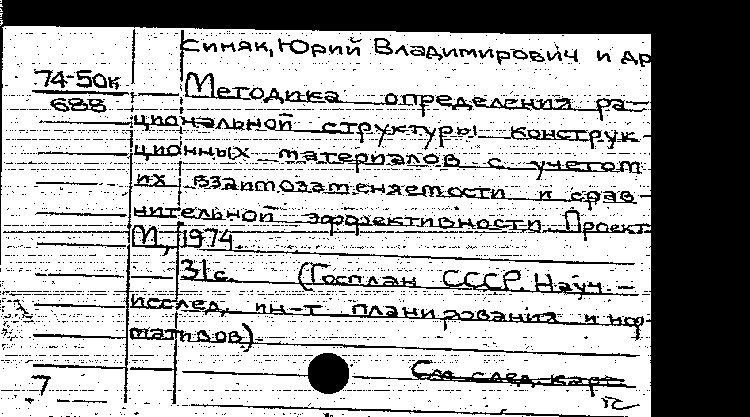 Синяк, Юрий Владимирович и др
74-50к
688
Методика определения ра-
циональной структуры конструк-
ционных материалов с учетом
их взаимозаменяемости и срав-
нительной эффективности. Проект
М., 1974.
31с. (Госплан СССР. Науч.-
исслед. ин-т планирования и нор-
мативов).
См след. карт
7